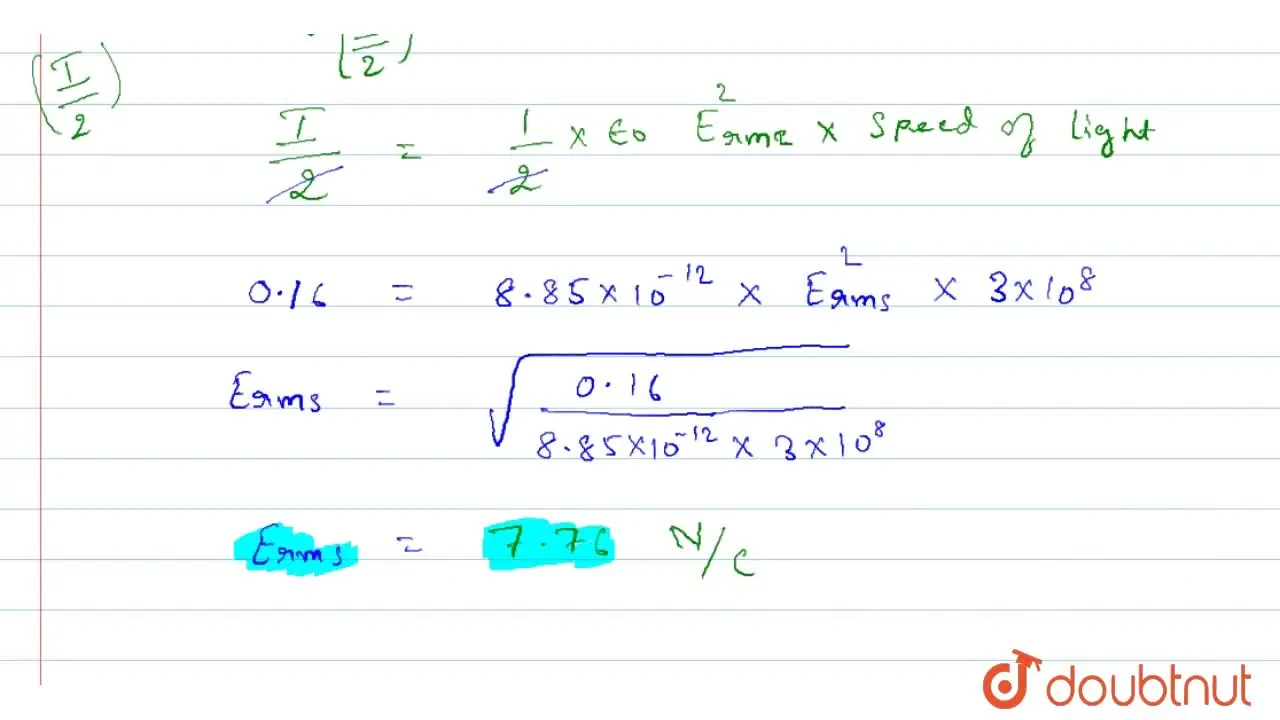 (I/2) (I/2)
I/2 = 1/2 × ϵ0 E²rms × Speed of light
0.16 = 8.85×10⁻¹² × E²rms × 3×10⁸
Erms = √(0.16 / 8.85×10⁻¹² × 3×10⁸)
Erms = 7.76 N/C
doubtnut